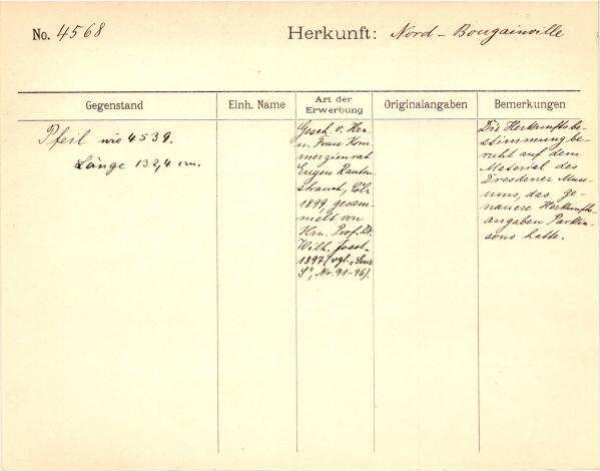 No. 4568
Herkunft: Nord-Bougainville
Gegenstand
Einh. Name
Art der
Erwerbung
Originalangaben
Bemerkungen
Pfeil wie 4539.
Länge 132,4 cm.
Gesch. v. Hrn.
u. Frau Kom-
merzienrat
Eugen Rauten-
strauch, Cöln
1899, gesam-
melt von
Hrn. Prof. Dr.
Wilh. Joest
1897 (vgl.
Nr. 91-96).
Die Herkunftsbe-
stimmung be-
ruht auf dem
Material des
Dresdener Muse-
ums, das ge-
nauere Herkunfts-
angaben Parkin-
sons hatte.